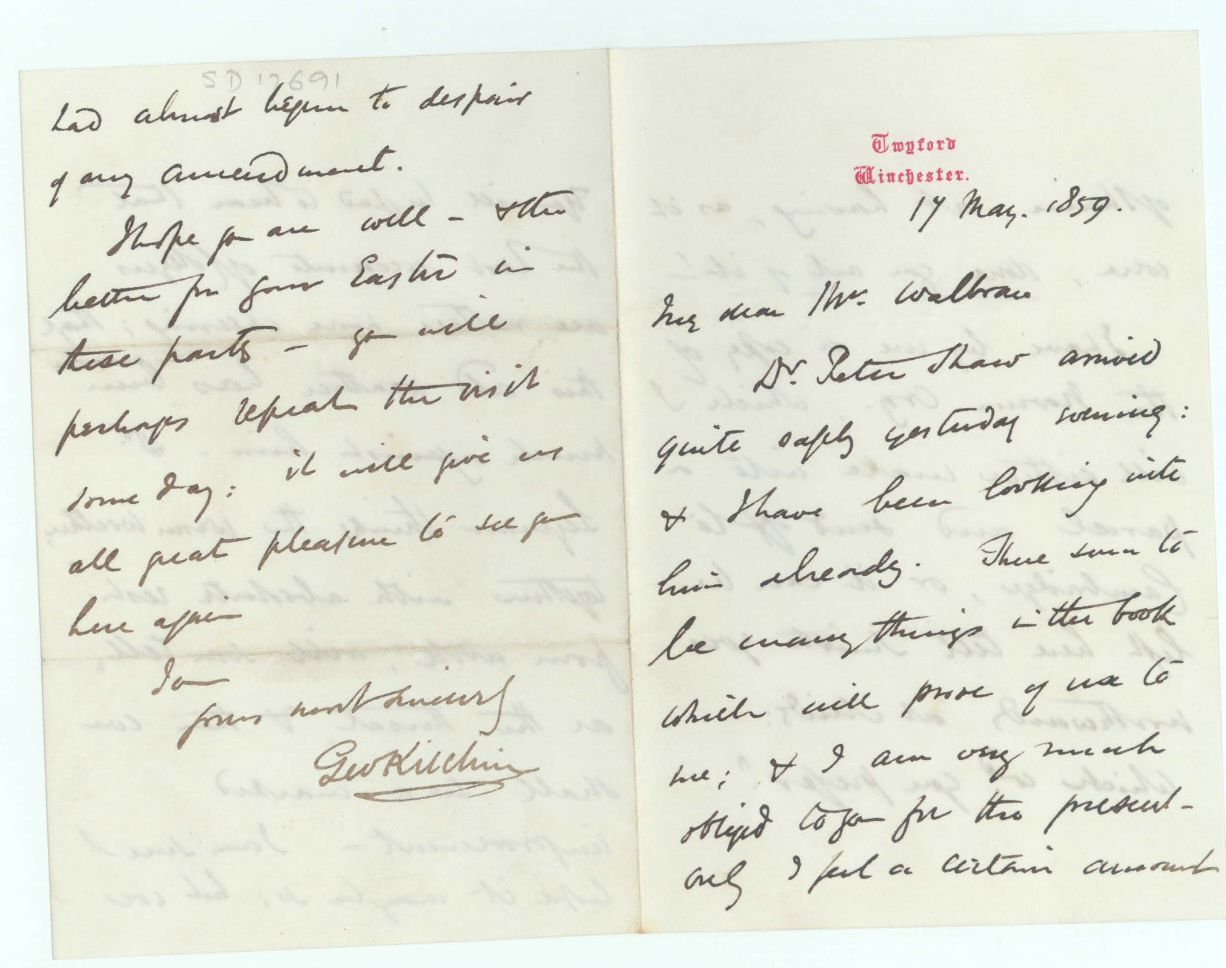 SD 12691
had almost begun to despair
of any amendment.
I hope you are well - & the
better for your Easter in
these parts - you will
perhaps repeat the visit
some day: it will give us
all great pleasure to see you
here again
I am
yours most sincerely
Geo Kitchin
Twyford
Winchester.
17 May. 1859.
My dear Mr. Walbran
Dr. Peter Shaw arrived
quite safely yesterday evening:
& I have been looking into
him already. There seem to
be many things in the book
which will prove of use to
me; & I am very much
obliged to you for the present-
only I feel a certain amount